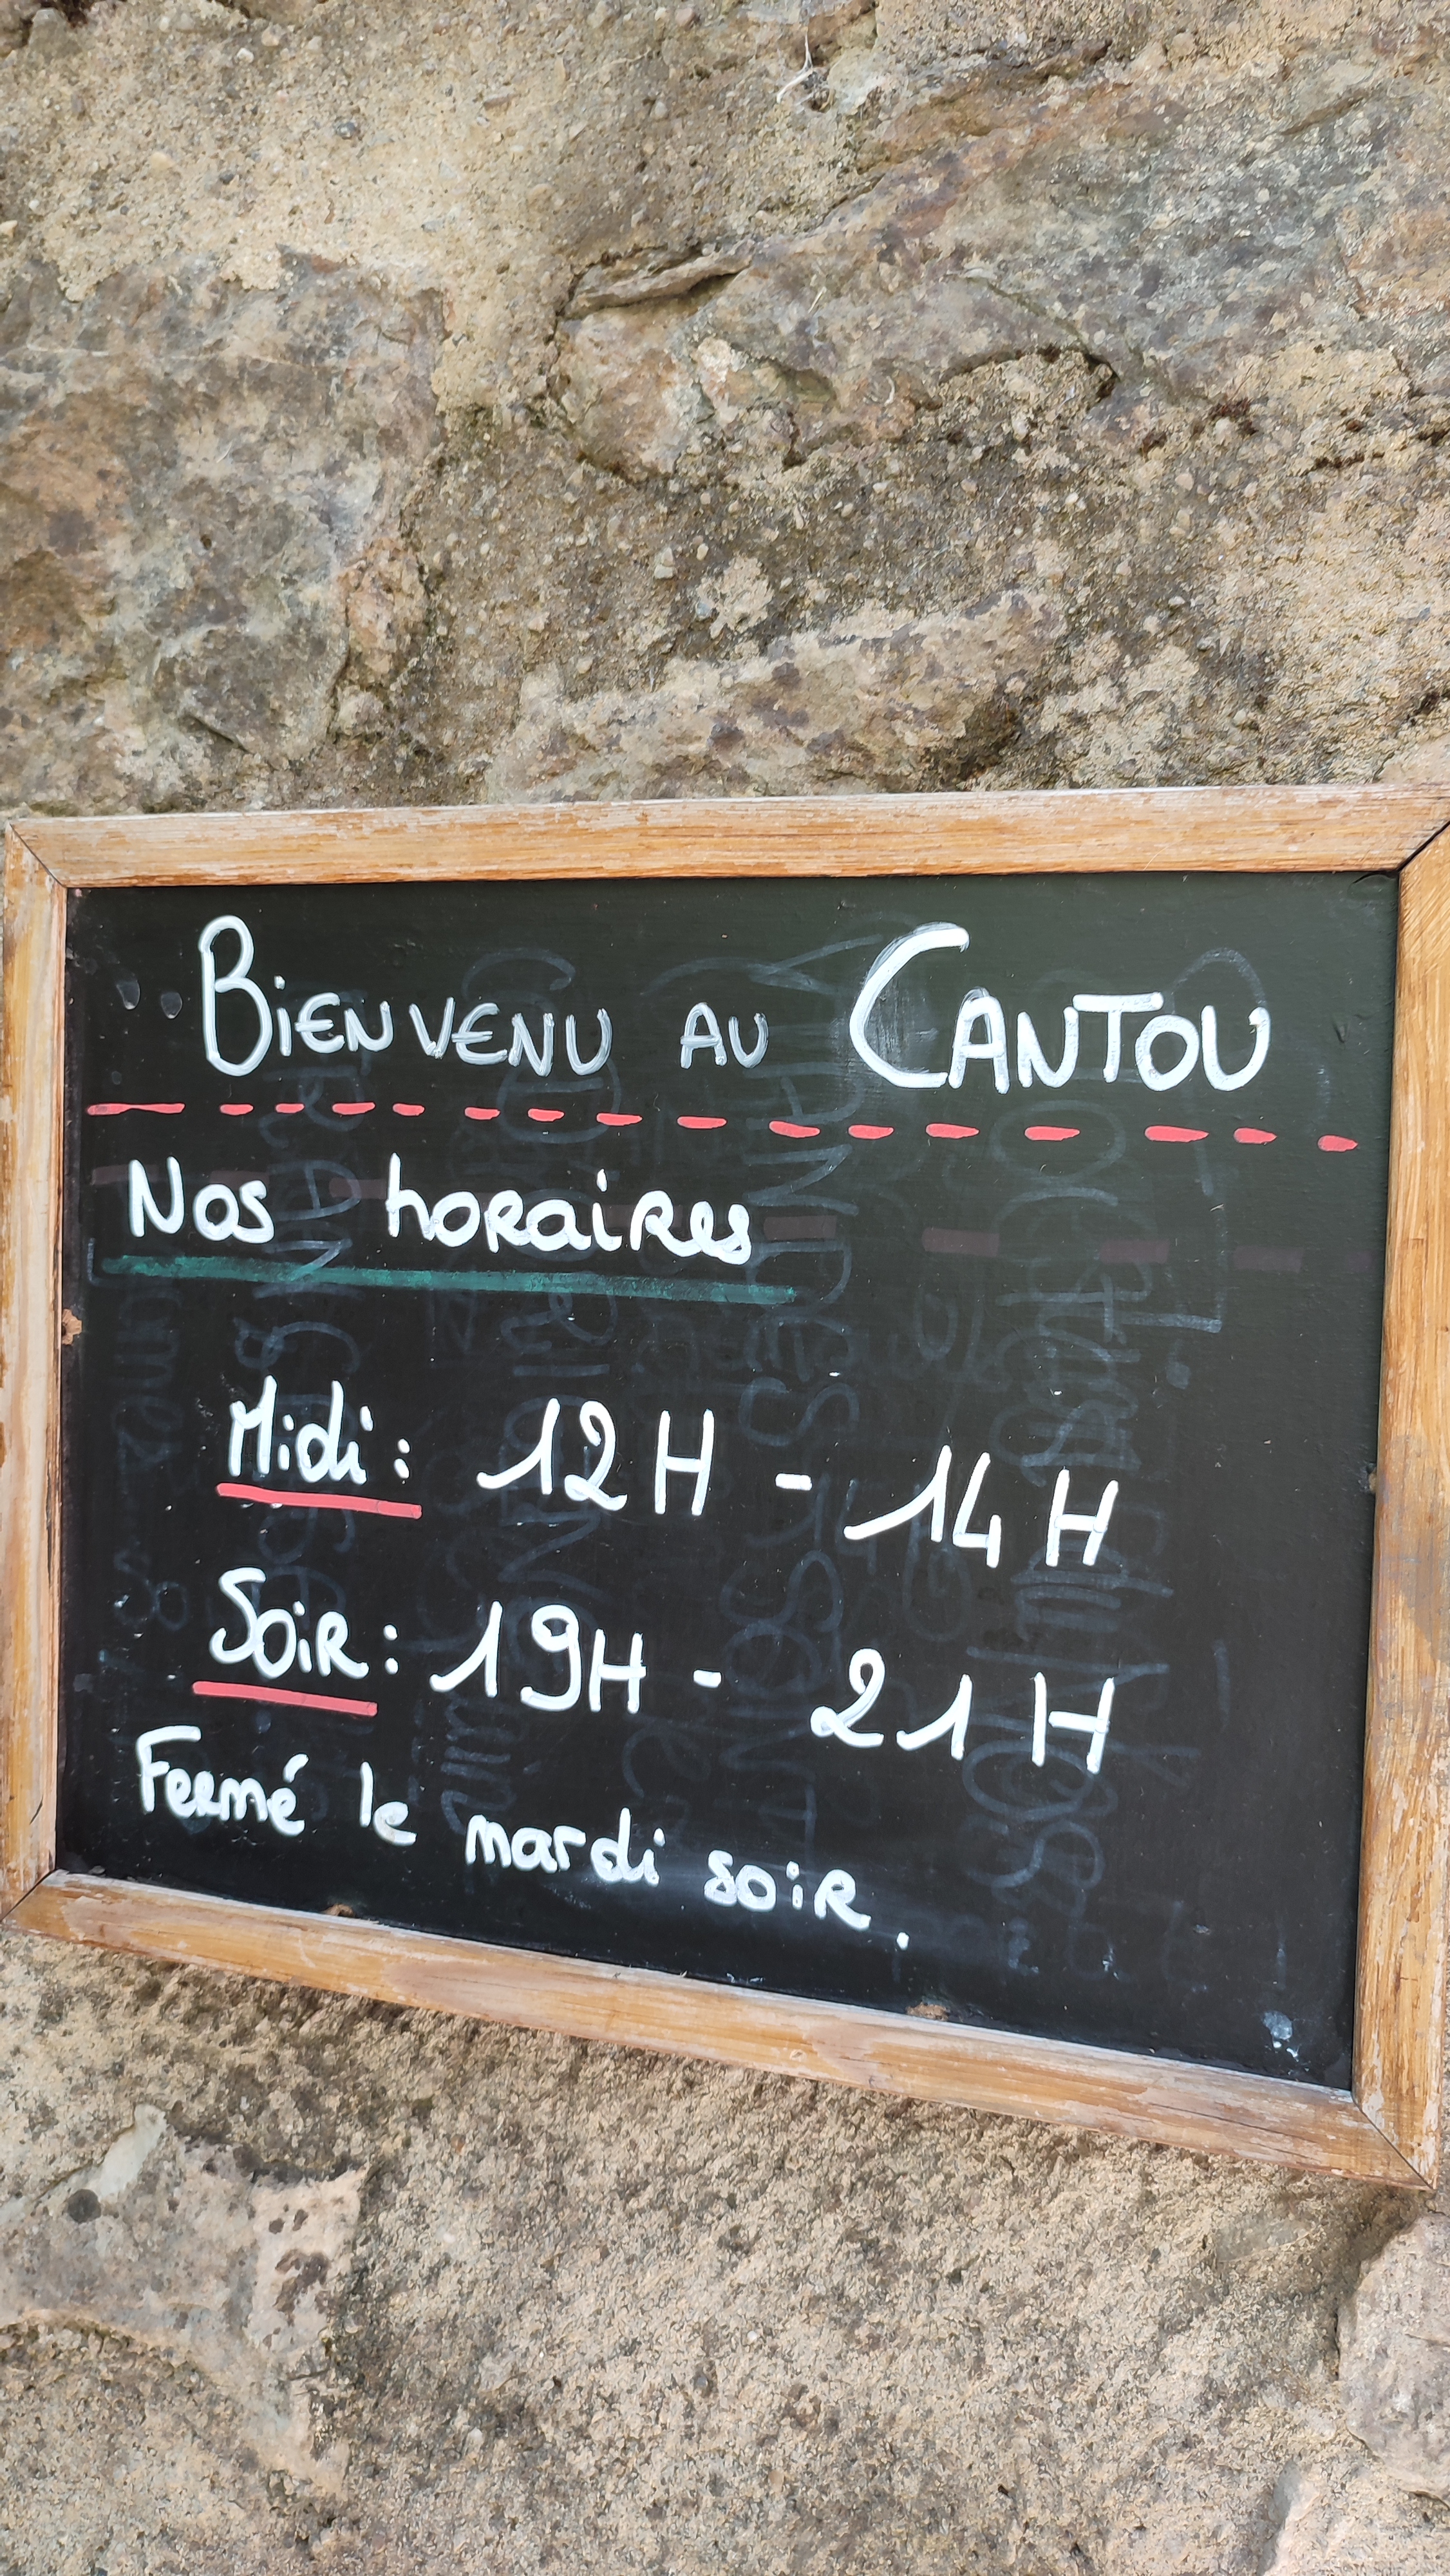 BiENVENU AU CANTOU
Nos horaires
Midi : 12 H - 14 H
Soir : 19H - 21 H
Fermé le mardi soir.